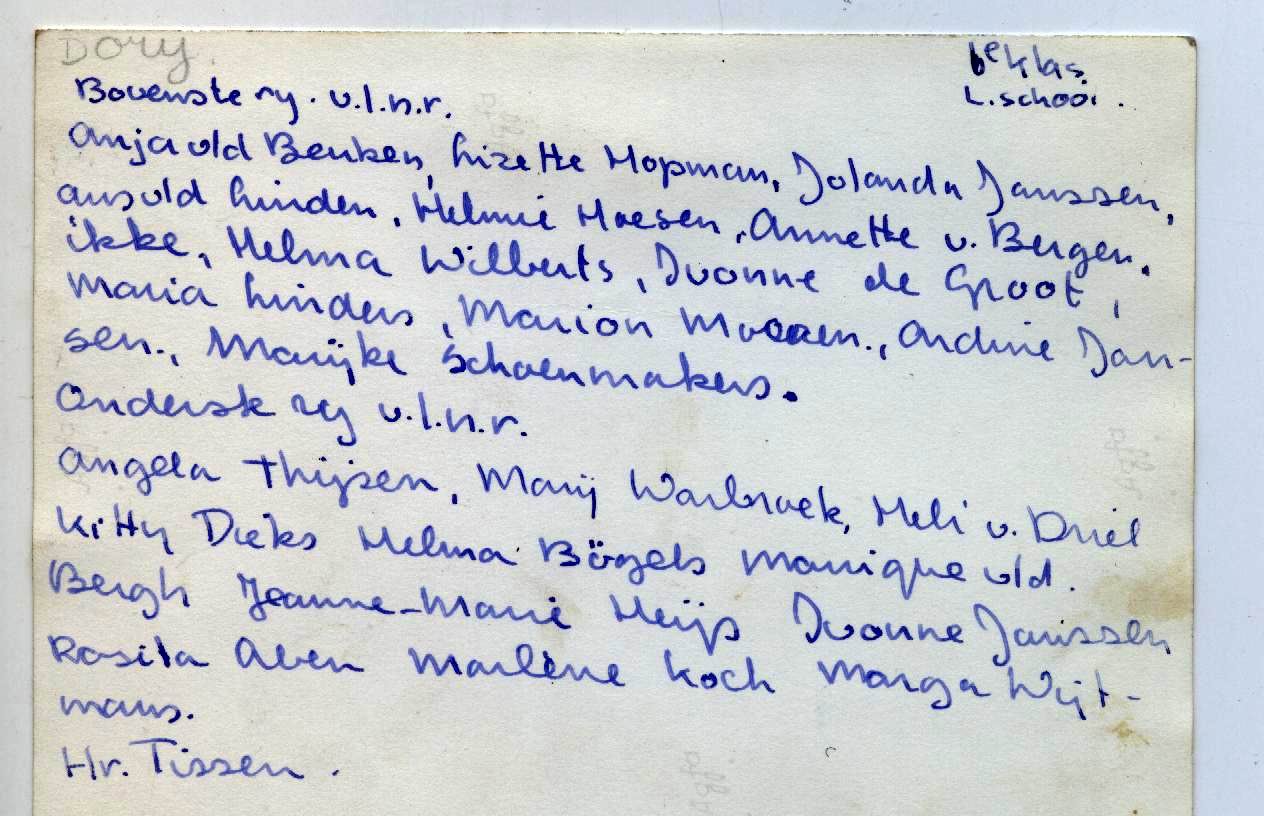 Dory.
6e klas.
L.school.
Bovenste ry. v.l.n.r.
Anja v/d Beuken, Lizette Hopman, Jolanda Janssen,
Ans v/d Linden, Helmie Hoesen, Annette v. Bergen,
ikke, Helma Wilberts, Ivonne de Groot,
Maria Linders, Marion , Ardine Jan-
sen., Marijke Schoenmakers.
Onderste ry v.l.n.r.
Angela Thijsen, Marij Warbroek, Meli v. Driel
Kitty Dieks Helma Bögels Monique v/d.
Bergh Jeanne-Marie Heijs Ivonne Janssen
Rosita Aben Marlène Koch Marga Wijt-
mans.
Hr. Tissen.